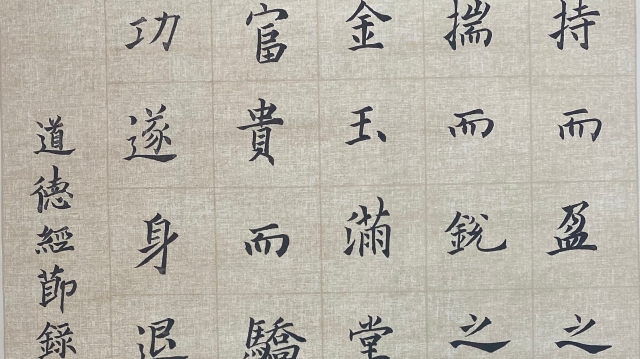 持而盈之
揣而銳之
金玉滿堂
富貴而驕
功遂身退
道德經節錄